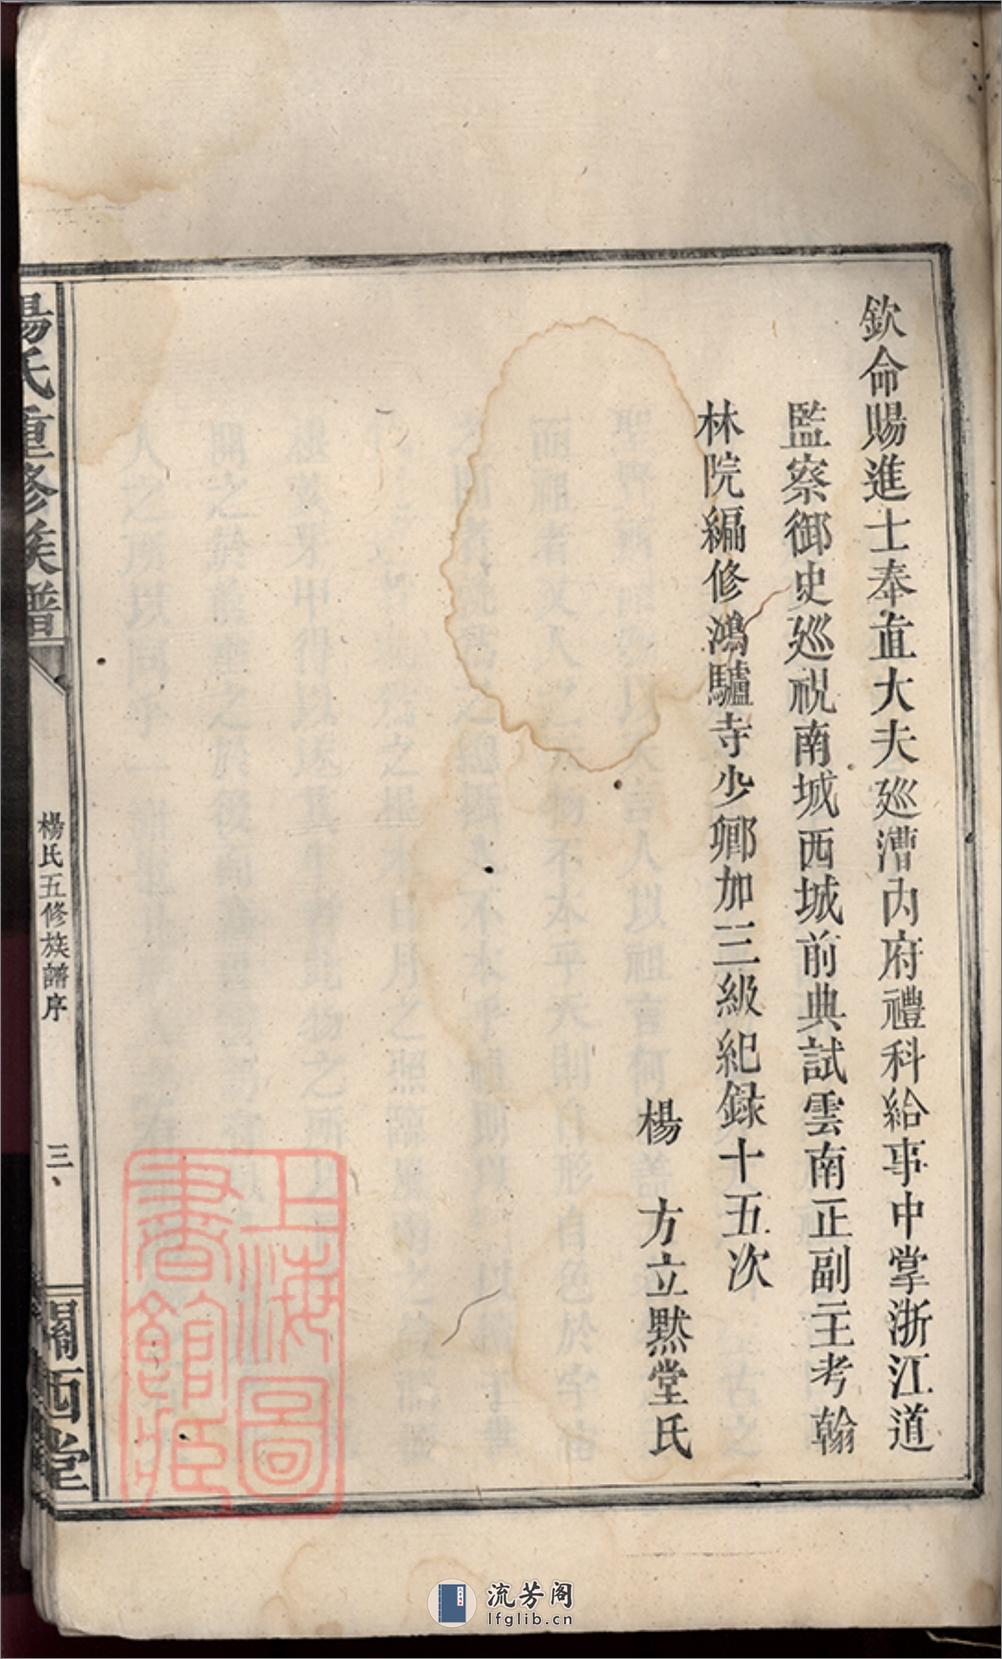 欽命賜進士奉直大夫廵漕內府禮科給事中掌浙江道
監察御史廵視南城西城前典試雲南正副主考翰
林院編修鴻驢寺少卿加三級紀録十五次
楊　方立默堂氏
楊氏重修族譜
楊氏五修族譜序
三、
關西堂
上海圖
書館藏
流芳阁
lfglib.cn